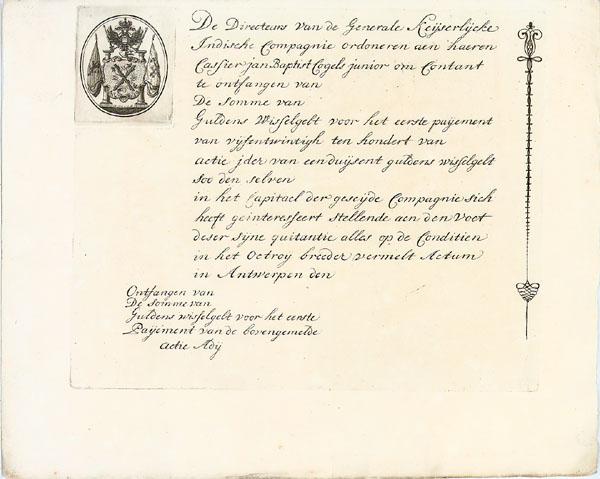 De Directeurs van de Generale Keijserlijcke
Indische Compagnie ordoneren aen haeren
Cassier jan Baptist Cogels junior om Contant
te ontfangen van
De somme van
Guldens Wisselgelt voor het eerste paijement
van vijfentwintigh ten hondert van
actie jder van eenduijsent guldens wisselgelt
Soo den selven
in het Capitael der geseijde Compagnie sich
heeft geinteresseert stellende aen den voet
deser sijne quitantie alles op de Conditien
in het Octroy breeder vermelt Actum
in Antwerpen den
Ontfangen van
De somme van
Guldens wisselgelt voor het eerste
Paijement van de bovengemelde
actie Adij